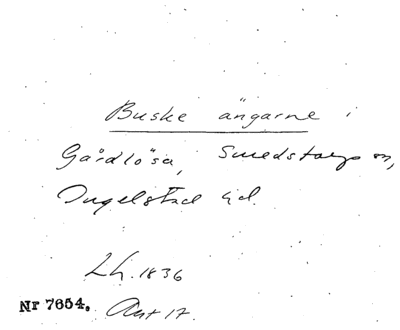 Buske ängarne i
Gårdlösa, Smedstorps sn,
Ingelstad hd.
Lh. 1836
Nr 7654. Akt 17.